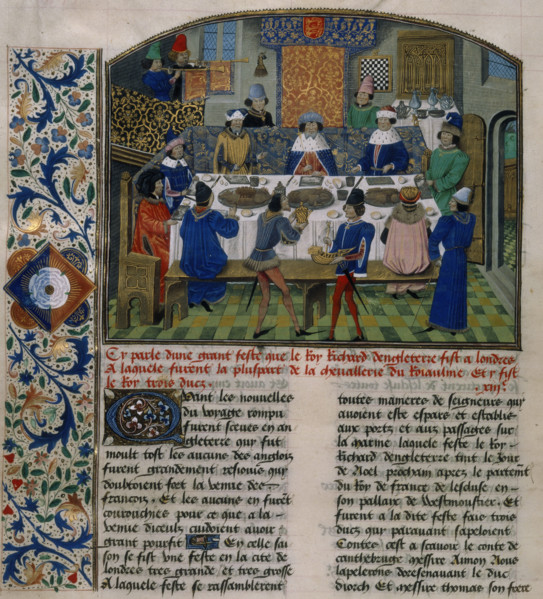 Cy parle dune grant feste que le Roy Richard dengleterre fist a londres
A laquelle furent la pluspart de la chevallerie du Roiaulme. Et y fist
le Roy trois ducz. xiiij
Quant les nouvelles
du voyage rompu
furent sceues en an
gleterre qui fut
moult tost les aucuns des anglois
furent grandement resiouis qui
doubtoient fort la venue des
francois. Et les aucuns en furent
courouchies pour ce que a la
venue diceulx cuidoient avoir
grant pourfit En celle sai
son se fist une feste en la cite de
londres tres grande et tres grosse
A laquelle feste se rassamblerent
toutes manieres de seigneurs qui
avoient este espars et establis
aux portz et aux passages sur
la marine laquelle feste le Roy
Richard dengleterre tint le Jour
de Noel prochain apres le partemt
du Roy de france de lescluse en
son pallaix de Westmoustier. Et
furent a la dite feste fais trois
ducz qui paravant sapeloient
Contes cest a scavoir le conte de
cantebruge messire Aimon Nous
lapelerons doresenavant le duc
diorch Et messire thomas son frere